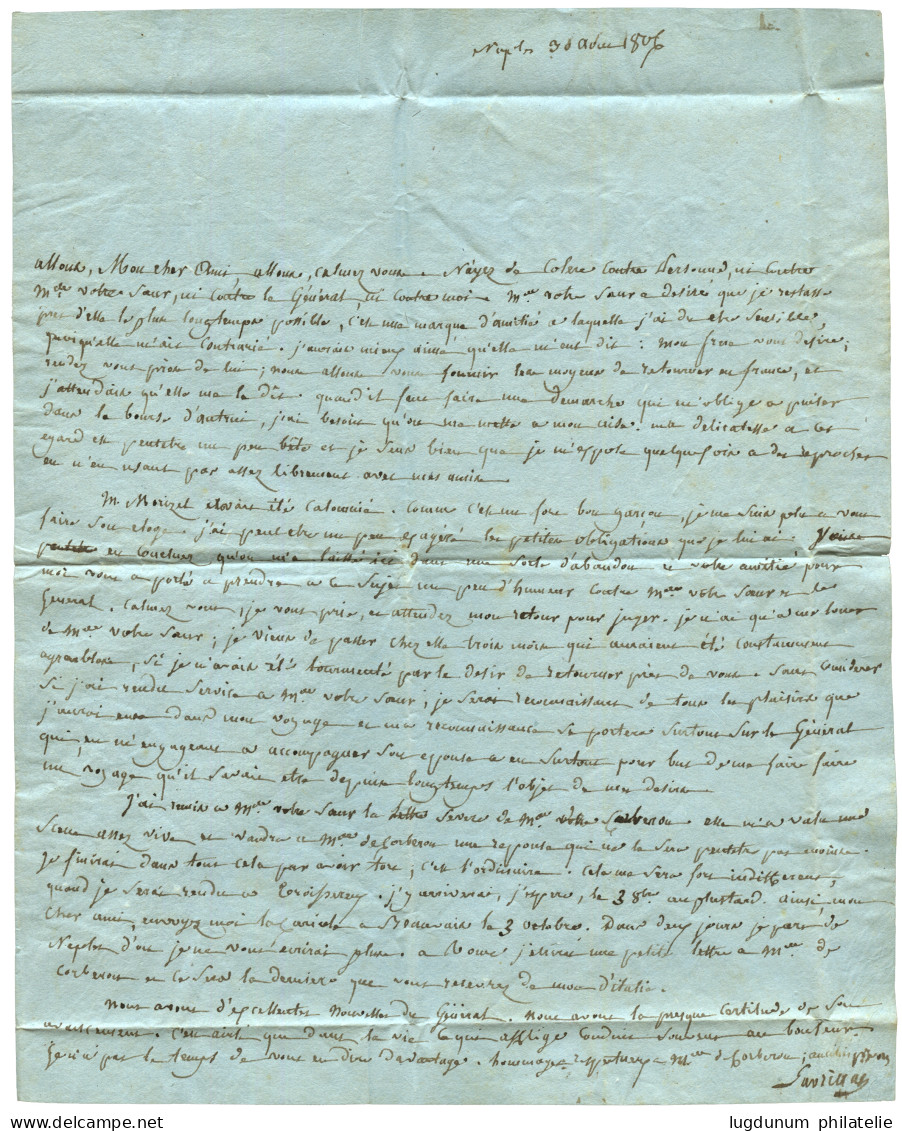 Naples 30 Aout 1806
allons, Mon cher Ami allons, calmez vous. N'ayez de Colere Contre Personne, ni Contre
Mde votre Sœur, ni Contre le Général, ni Contre moi. Mme votre Sœur a desiré que je restasse
près d'elle le plus longtemps possible, c'est une marque d'amitié a laquelle j'ai du etre Sensible,
puisqu'elle m'ait Contrarié. j'aurais mieux aimé qu'elle m'eut dit : mon frere vous desire,
rendez vous près de lui ; nous allons vous fournir les moyens de retourner en france, et
j'attendais qu'elle me le dit. quand il faut faire une demarche qui m'oblige a puiser
dans la bourse d'autrui, j'ai besoin qu'on me mette a mon aise. ma delicatesse a cet
egard est peutetre un peu bete et je Sens bien que je m'expose quelquefois a des reproches
en n'en usant pas assez librement avec mes amis.
M. Morizel avait été Calomnié. Comme C'est un fort bon garcon, je me Suis plu a vous
faire Son eloge. j'ai peut etre un peu exagéré les petites obligations que je lui ai. Vous
en Concluez qu'on m'a laissé ici dans une Sorte d'abandon et votre amitié pour
moi vous a porté a prendre a ce Sujet un peu d'humeur Contre Mme votre Sœur et le
General. Calmez vous, je vous prie, et attendez mon retour pour juger. je n'ai qu'a me louer
de Mme votre Sœur ; je viens de passer chez elle trois mois qui auraient été Constamment
agreables, Si je n'avais été tourmenté par le desir de retourner près de vous. Sans Considerer
Si j'ai rendu Service a Mme votre Sœur, je Serai reconnaissant de tous les plaisirs que
j'aurai eus dans mon voyage et ma reconnaissance Se portera Surtout Sur le Général
qui, en m'engageant a accompagner Son epouse a eu Surtout pour but de me faire faire
un voyage qu'il Savait etre depuis longtemps l'objet de mes desirs.
J'ai remis a Mme votre Sœur la lettre Severe de Mme de Corberon elle m'a valu une
Scene assez vive et vaudra a Mme de Corberon une reponse qui ne le Sera peutetre pas moins.
Je finirai dans tout cela par avoir tort ; c'est l'ordinaire. Cela me Sera fort indifferent,
quand je Serai rendu a Troissereux. j'y arriverai, j'espere, le 3 8bre au plus tard. ainsi, mon
Cher ami, envoyez moi la Cariole a Beauvais le 3 octobre. Dans deux jours je pars de
Naples d'ou je ne vous écrirai plus. a Rome j'ecrirai une petite lettre a Mme de
Corberon et ce Sera la derniere que vous recevrez de moi d'italie.
Nous avons d'excellentes Nouvelles du Général. Nous avons la presque Certitude de Son
avancement. C'est ainsi que dans la vie Ce qui afflige Conduit Souvent au bonheur.
Je n'ai pas le temps de vous en dire davantage. hommages respectueux a Mme de Corberon ;
lugdunum philatelie